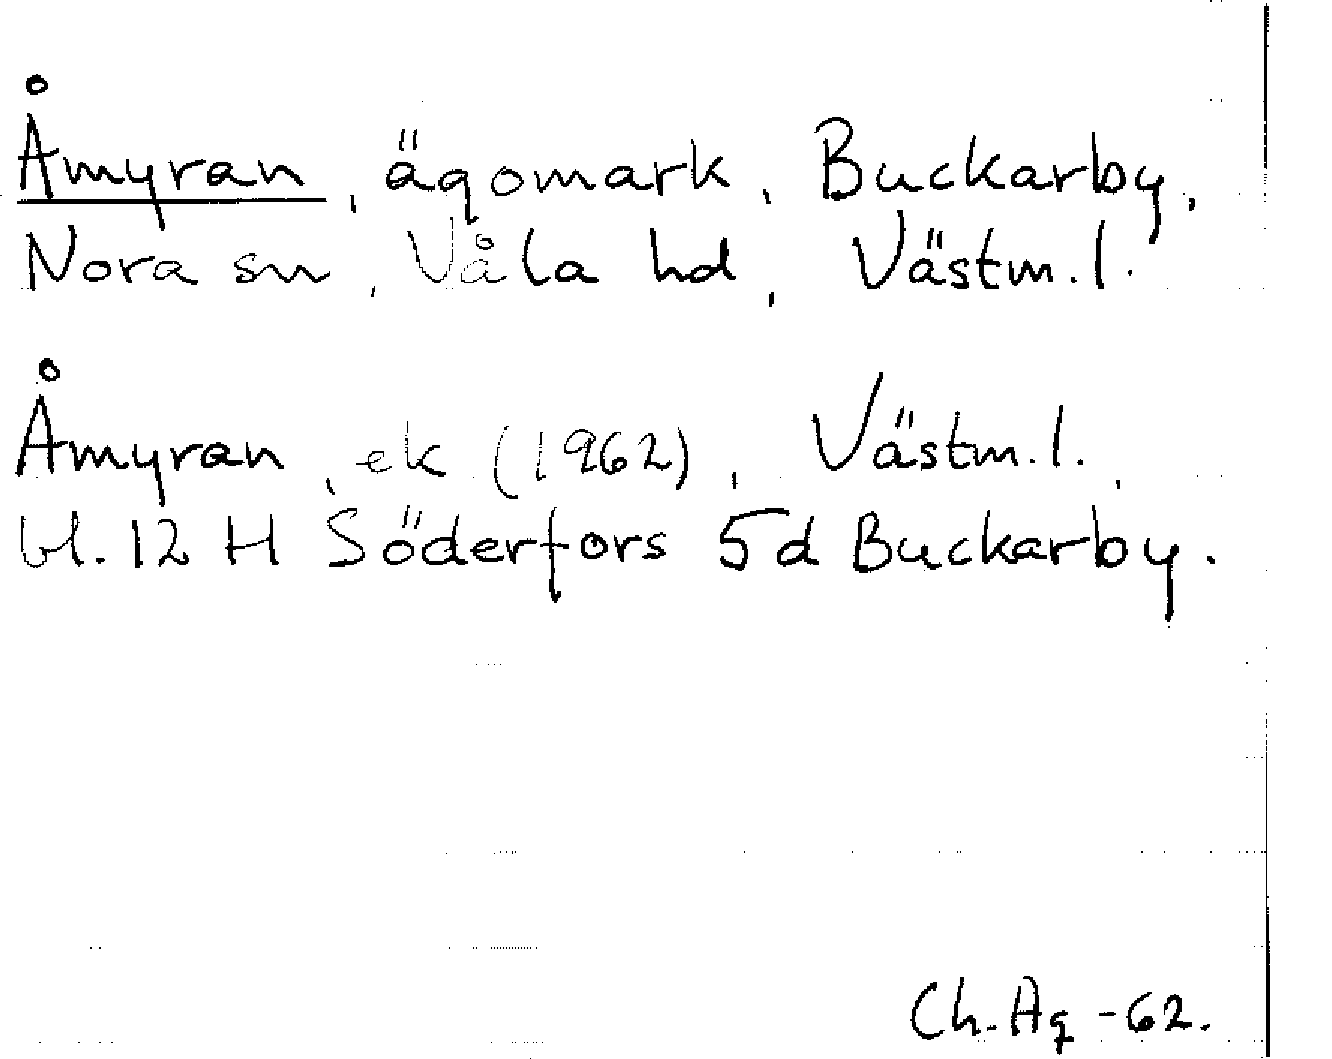 Åmyran, ägomark, Buckarby,
Nora sn, Våla hd, Västm.l.
Åmyran, ek (1962), Västm.l.,
bl. 12 H Söderfors 5d Buckarby.
Ch. Ag -62.